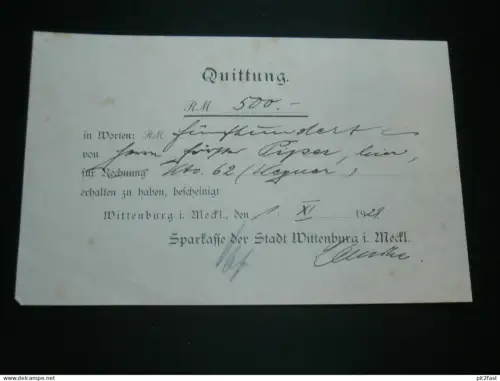 Quittung.
RM 500.-
in Worten: RM fünfhundert
von Herrn Förster Piper, hier,
für Rechnung Kto. 62 (Wegner)
erhalten zu haben, bescheinigt
Wittenburg i. Meckl., den 1. XI 1928
Sparkasse der Stadt Wittenburg i. Meckl.
www.picturetopeople.org